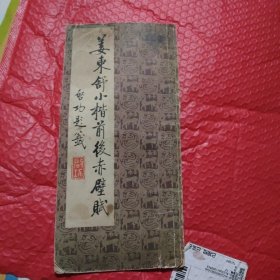 姜東舒小楷前後赤壁賦
啓功題簽